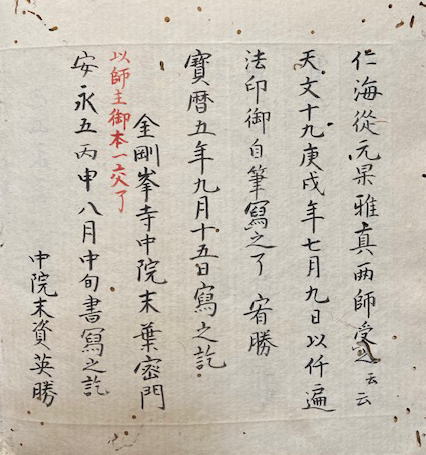 仁海從元杲雅真両師受之云云
天文十九庚戌年七月九日以仟遍
法印御自筆寫之了 宥勝
寶暦五年九月十五日寫之訖
金剛峯寺中院末葉密門
以師主御本一交了
安永五丙申八月中旬書寫之訖
中院末資英勝